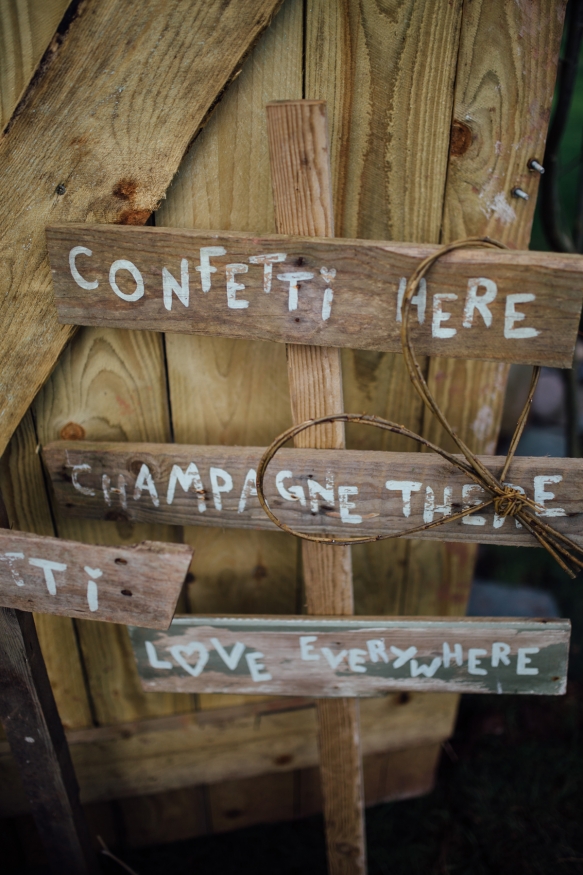 CONFETTi HERE
CHAMPAGNE THERE
TTi
LOVE EVERYWHERE